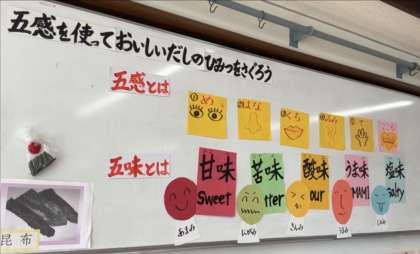 五感を使っておいしいだしのひみつをさぐろう
五感とは
め
はな
くち
みみ
五味とは
甘味
Sweet
苦味
tter
酸味
our
うま味
MAMI
塩味
alty
あまみ
にがみ
さんみ
うまみ
しおみ
昆布